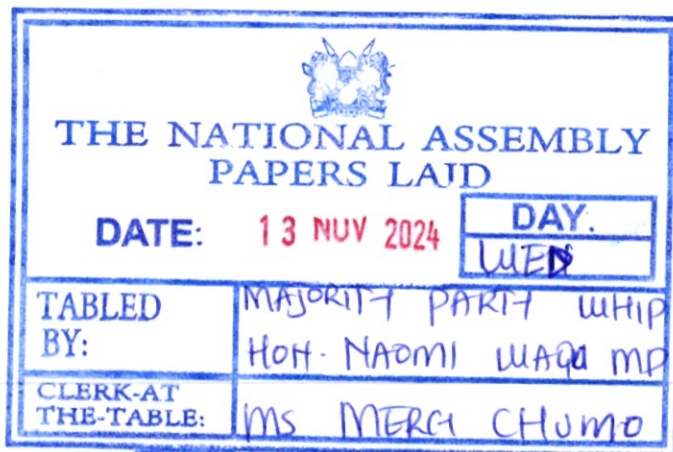 THE NATIONAL ASSEMBLY
PAPERS LAID
DATE: 13 NOV 2024
DAY.
WED
TABLED BY:
MAJORITY PARTY WHIP
HON. NAOMI WAQO MP
CLERK-AT THE-TABLE:
MS MERCY CHUMO